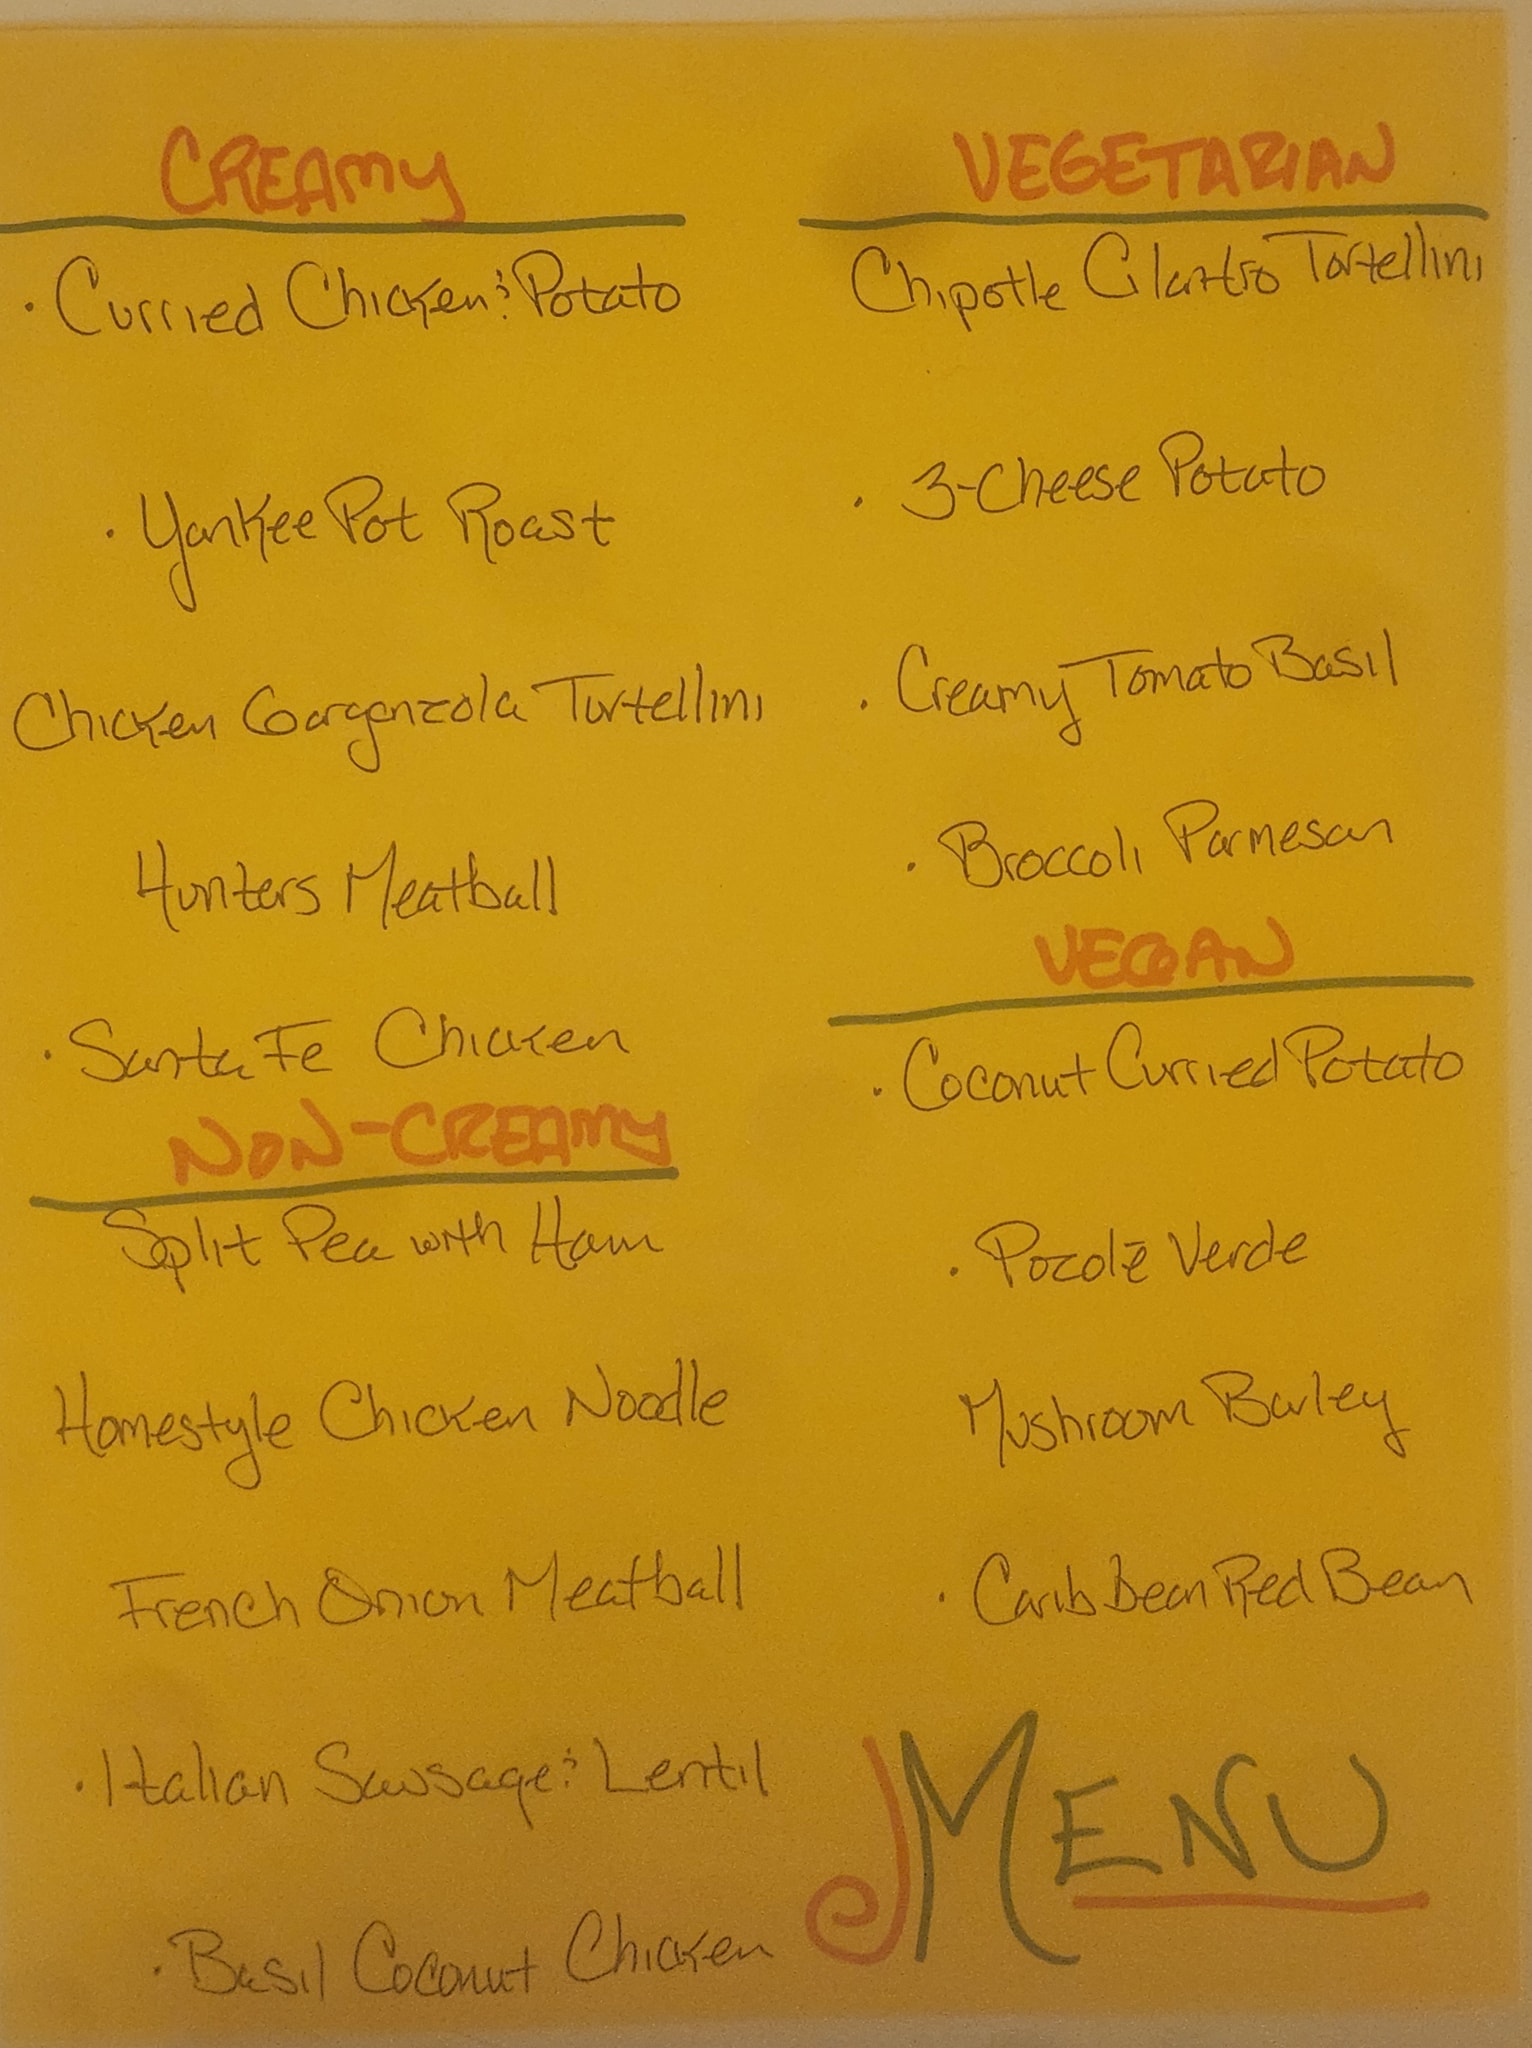 CREAMY
· Curried Chicken & Potato
· Yankee Pot Roast
Chicken Gorgonzola Tortellini
Hunters Meatball
· Santa Fe Chicken
NON-CREAMY
Split Pea with Ham
Homestyle Chicken Noodle
French Onion Meatball
· Italian Sausage & Lentil
· Basil Coconut Chicken
VEGETARIAN
Chipotle Cilantro Tortellini
· 3-Cheese Potato
· Creamy Tomato Basil
· Broccoli Parmesan
VEGAN
· Coconut Curried Potato
· Pozolē Verde
Mushroom Barley
· Caribbean Red Bean
MENU